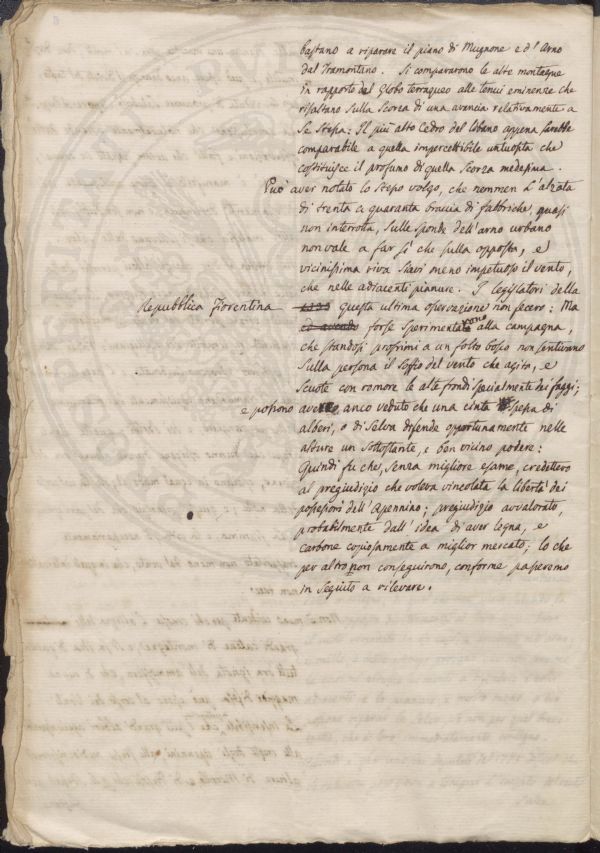 bastano a riparare il piano di Mugnone e d'Arno
dal Tramontano. Si compararono le alte montagne
in rapporto del globo terraqueo alle tenui eminenze che
risaltano sulla scorza di una arancia relativamente a
se stessa: Il più alto Cedro del Libano appena sarebbe
comparabile a quella impercettibile untuosità che
costituisce il profumo di quella scorza medesima.
Può aver notato lo stesso volgo, che nemmen l'alzata
di trenta o quaranta braccia di fabbriche, quasi
non interrotta, sulle sponde dell'arno urbano
non vale a far sì che sulla opposta, e
vicinissima riva siavi meno impetuoso il vento,
che nelle adiacenti pianure. I legislatori della
Repubblica Fiorentina questa ultima osservazione non fecero: Ma
forse sperimentarono alla campagna,
che standosi prossimi a un folto bosco non sentivano
sulla persona il soffio del vento che agita, e
scuote con romore le alte frondi specialmente dei faggi;
e possono aver anco veduto che una cinta spessa di
alberi, o di selva difende opportunamente nelle
alture un sottostante, e ben vicino podere:
Quindi fu che, senza migliore esame, credettero
al pregiudizio che voleva vincolata la libertà dei
possessori dell'Apennino; pregiudizio avvalorato,
probabilmente dall'idea di aver legna, e
carbone copiosamente a miglior mercato; lo che
per altro non conseguirono, conforme passeremo
in seguito a rilevare.